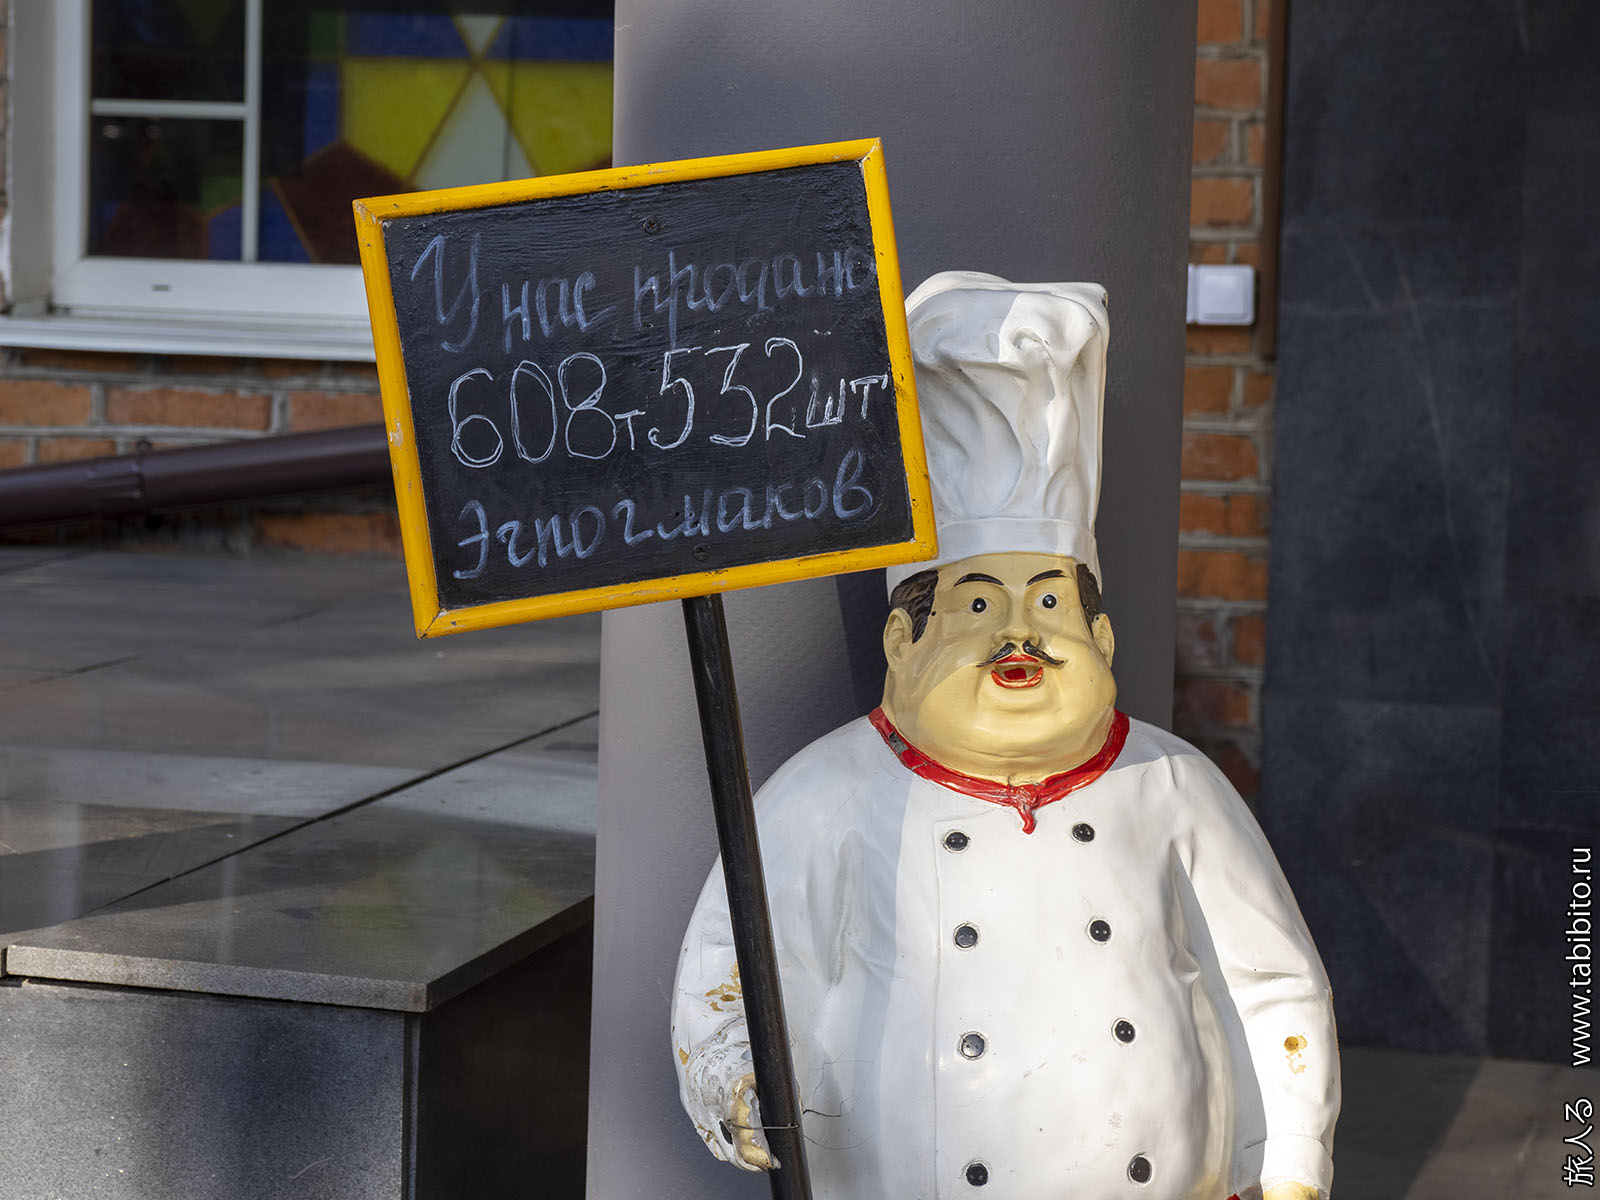 У нас продано
608т532шт
Эгчпогмаков
www.tabibito.ru
旅人る